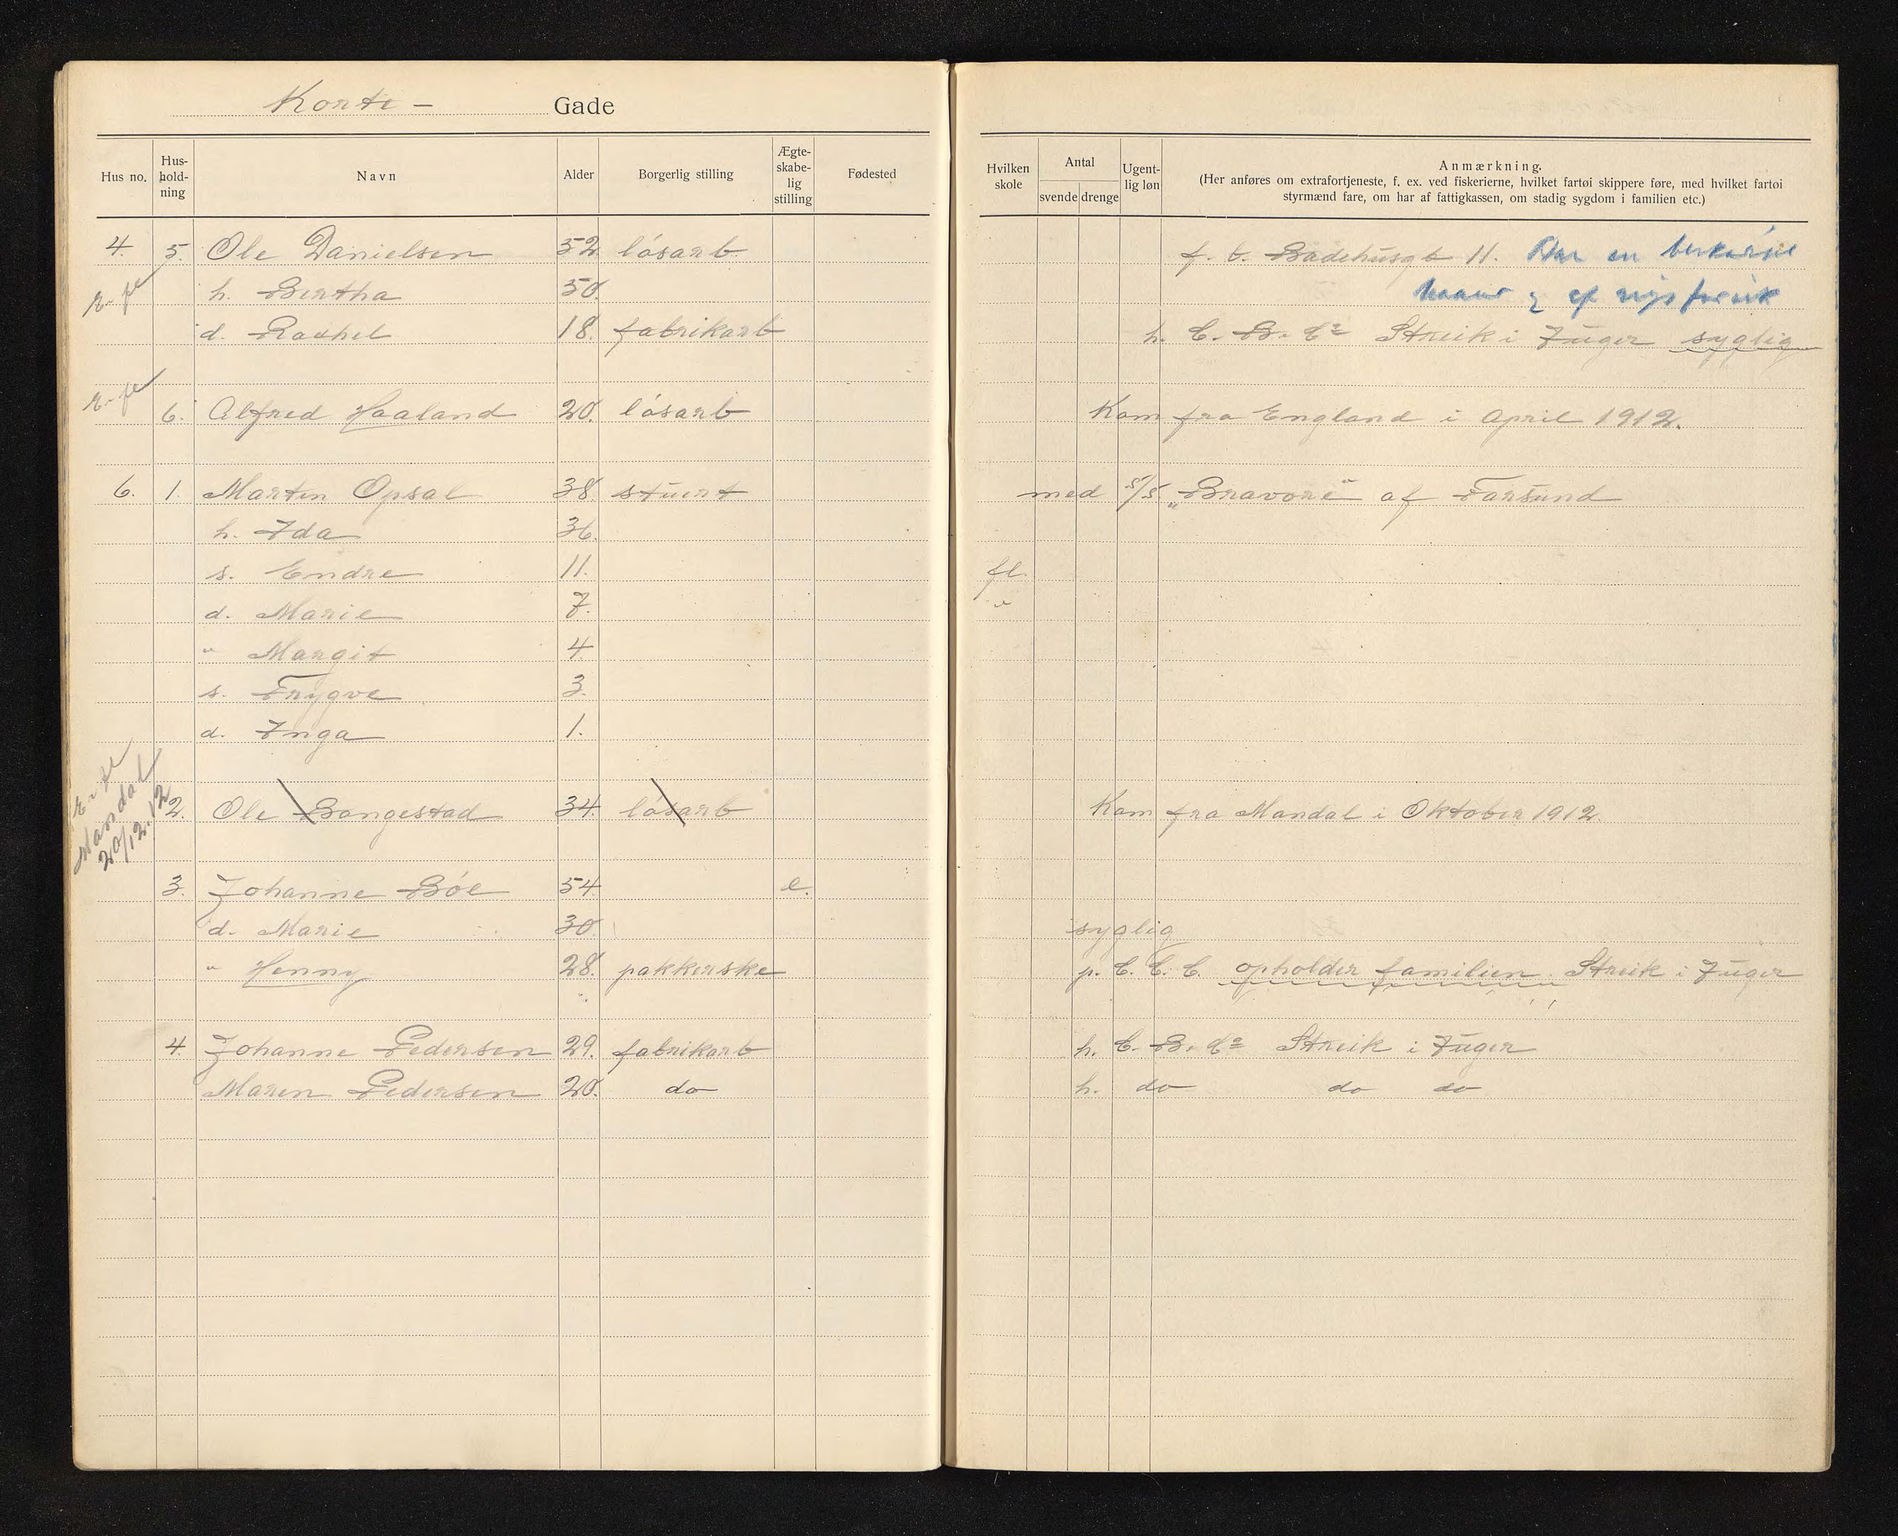 Korte - Gade
Hus no. Hus-hold-ning Navn Alder Borgerlig stilling Ægte-skabe-lig stilling Fødested
Hvilken skole Antal svende drenge Ugent-lig løn Anmærkning.
(Her anføres om extrafortjeneste, f. ex. ved fiskerierne, hvilket fartøi skippere føre, med hvilket fartøi
styrmænd fare, om har af fattigkassen, om stadig sygdom i familien etc.)
4. 5. Ole Danielsen 52. løsarb. f. b. Badehusgt 11. Har en
h. Bertha 50.
d. Rachel 18. fabrikarb h. C. B. Co Streik i Züger syglig
6. Alfred Haaland 20. løsarb Kom fra England i April 1912.
6. 1. Martin Opsal 38. stuert med S/S "Bravore" af Farsund
h. Ida 36.
s. Endre 11. fl.
d. Marie 7. "
" Margit 4
s. Trygve 3.
d. Inga 1.
Mandal
20/12.12
2. Ole Bangestad 34. løsarb Kom fra Mandal i Oktober 1912.
3. Johanne Bøe 54. e.
d. Marie 30. syglig
" Henny 28. pakkerske p. C. C. C. opholder familien. Streik i Züger
4. Johanne Pedersen 29. fabrikarb h. C. B. Co Streik i Züger
Maren Pedersen 20. do h. do do do